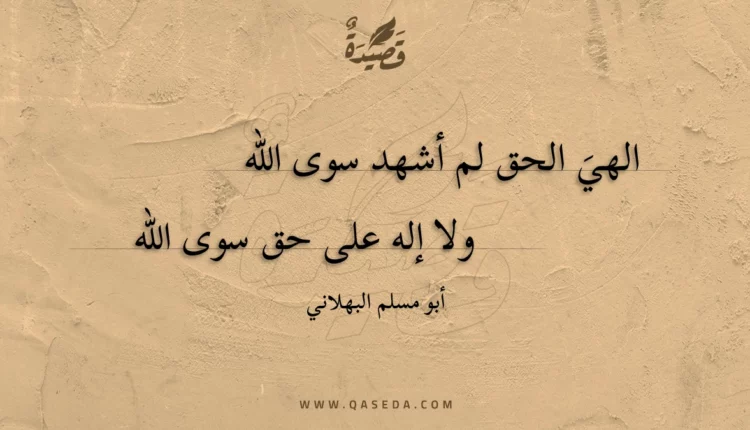 قَصِيْدَةٌ
الهيَ الحق لم أشهد سوى الله
ولا إله على حق سوى الله
أبو مسلم البهلاني
WWW.QASEDA.COM